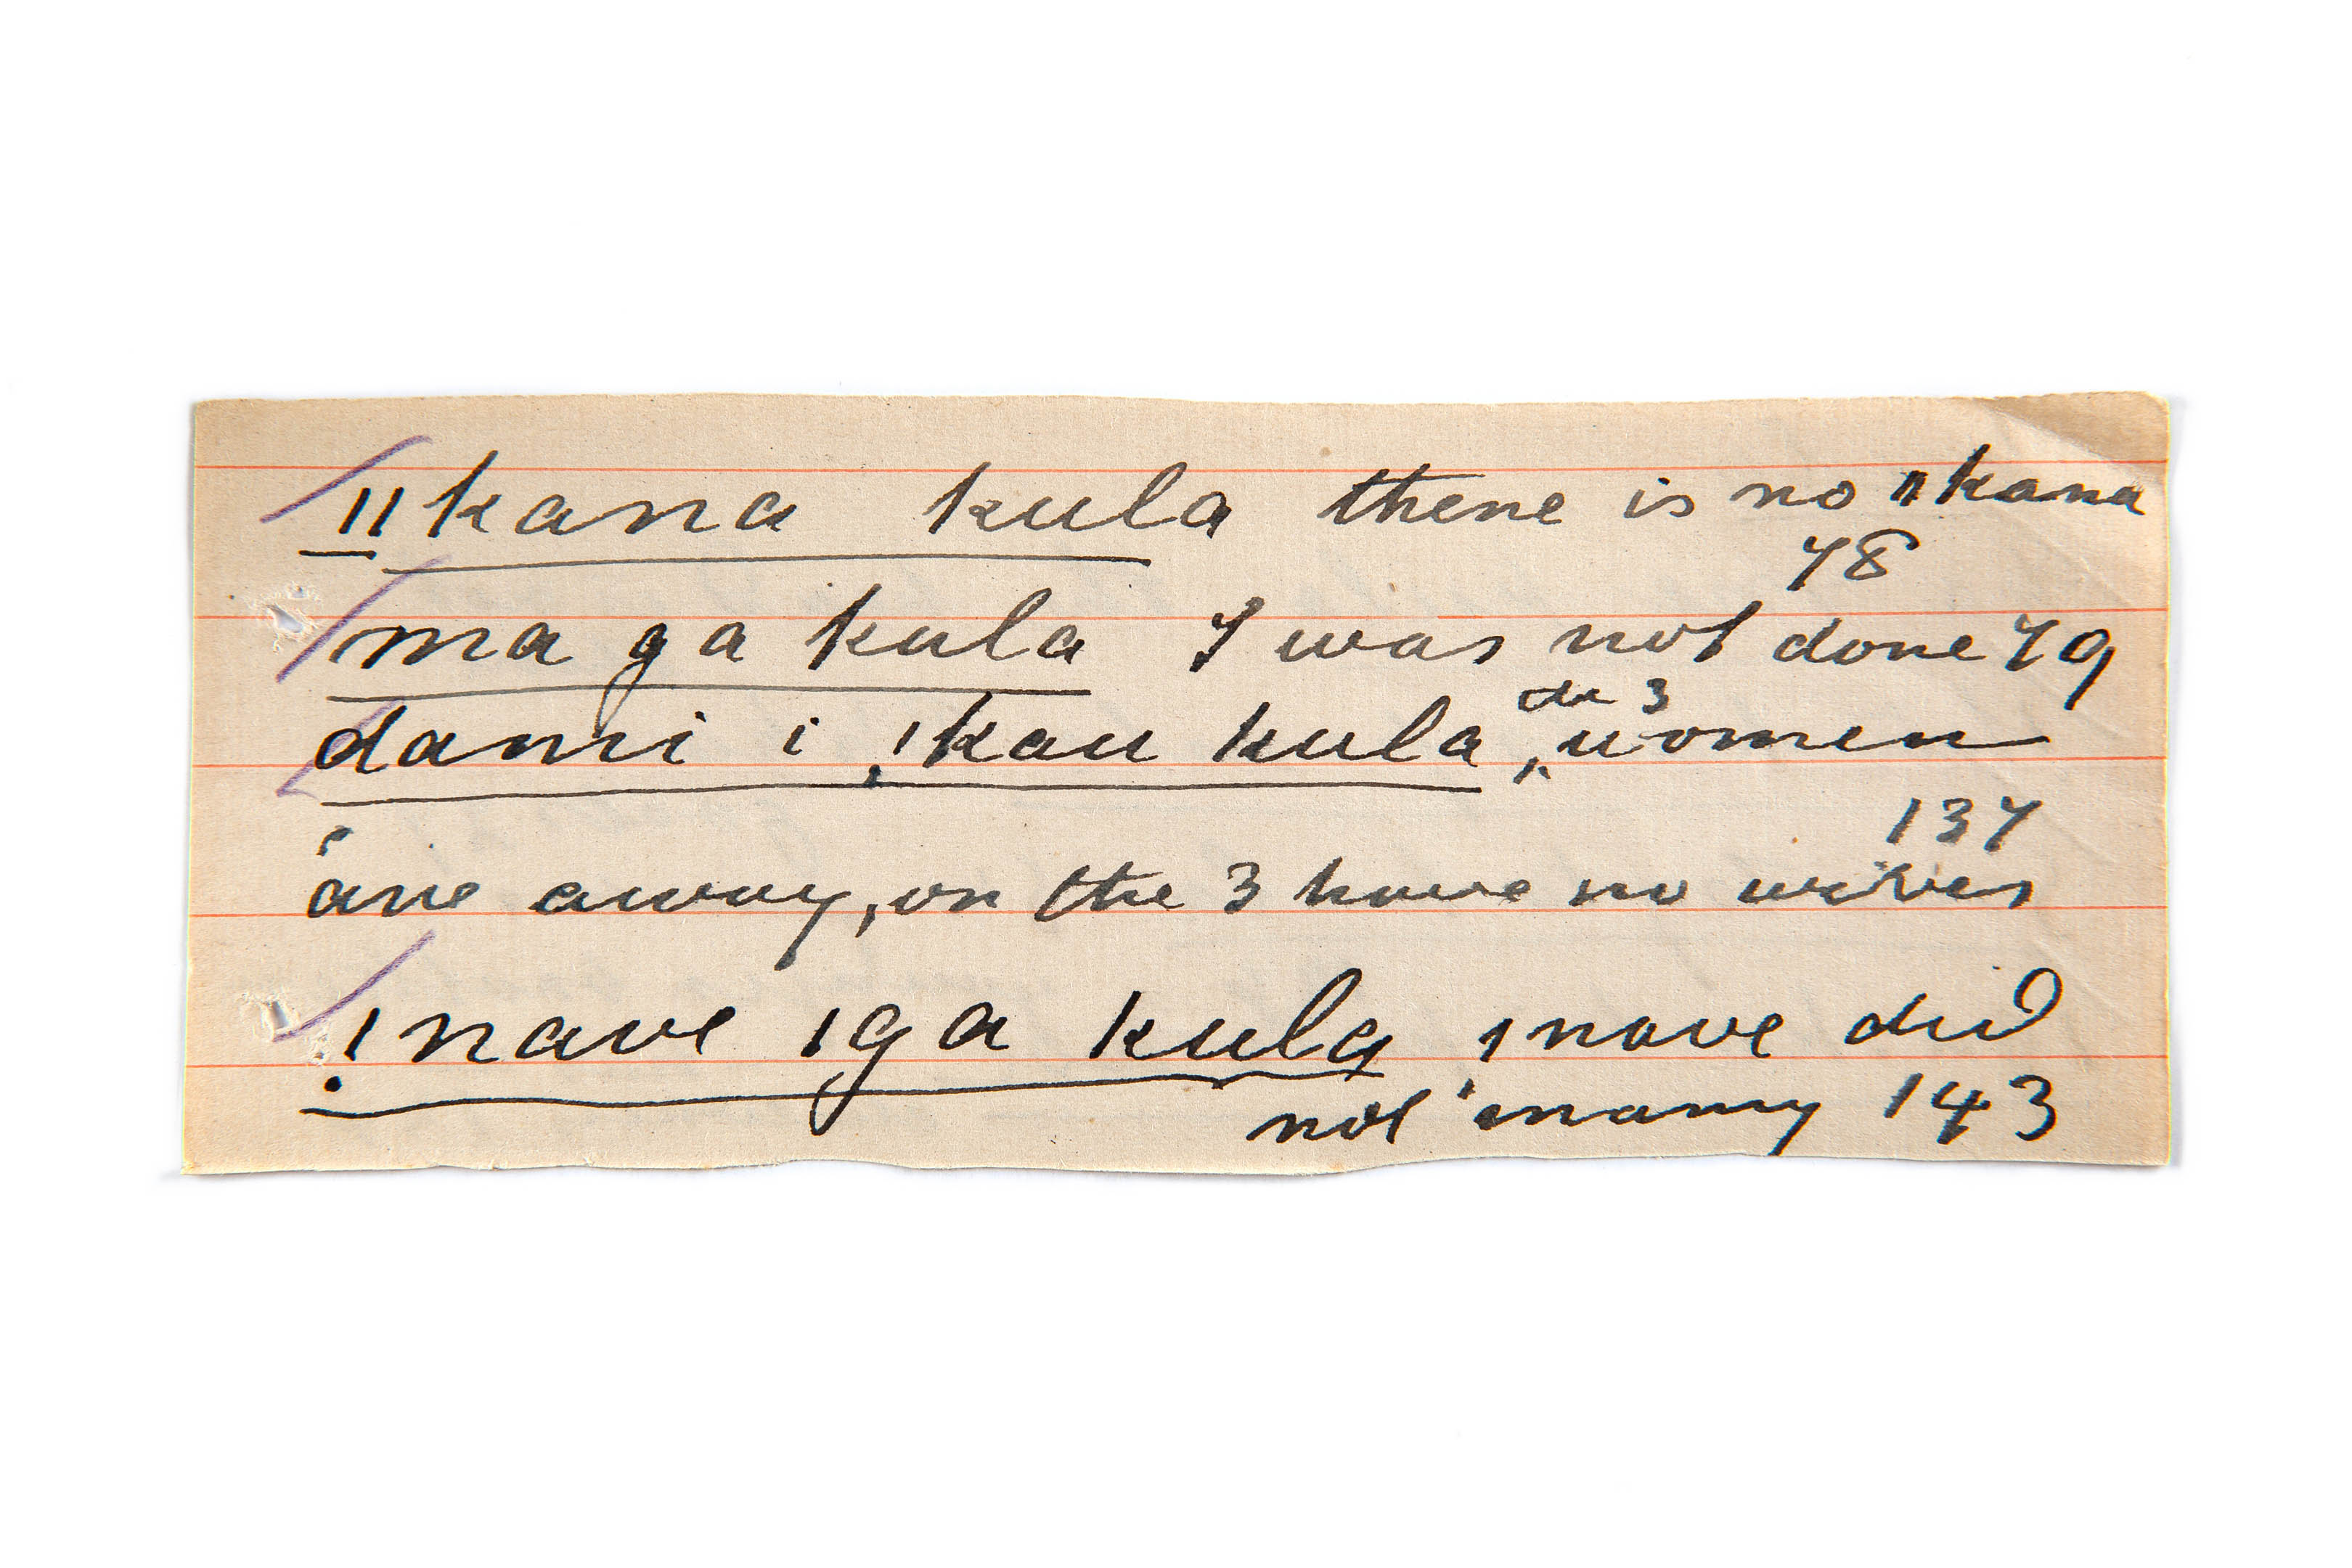 ǁkana kula there is no ǁkana
78
ma ga kula I was not done 79
dami i !kau kula, the 3 women
137
are away, or the 3 have no wives
!nave ǀga kula !nave did
not many 143